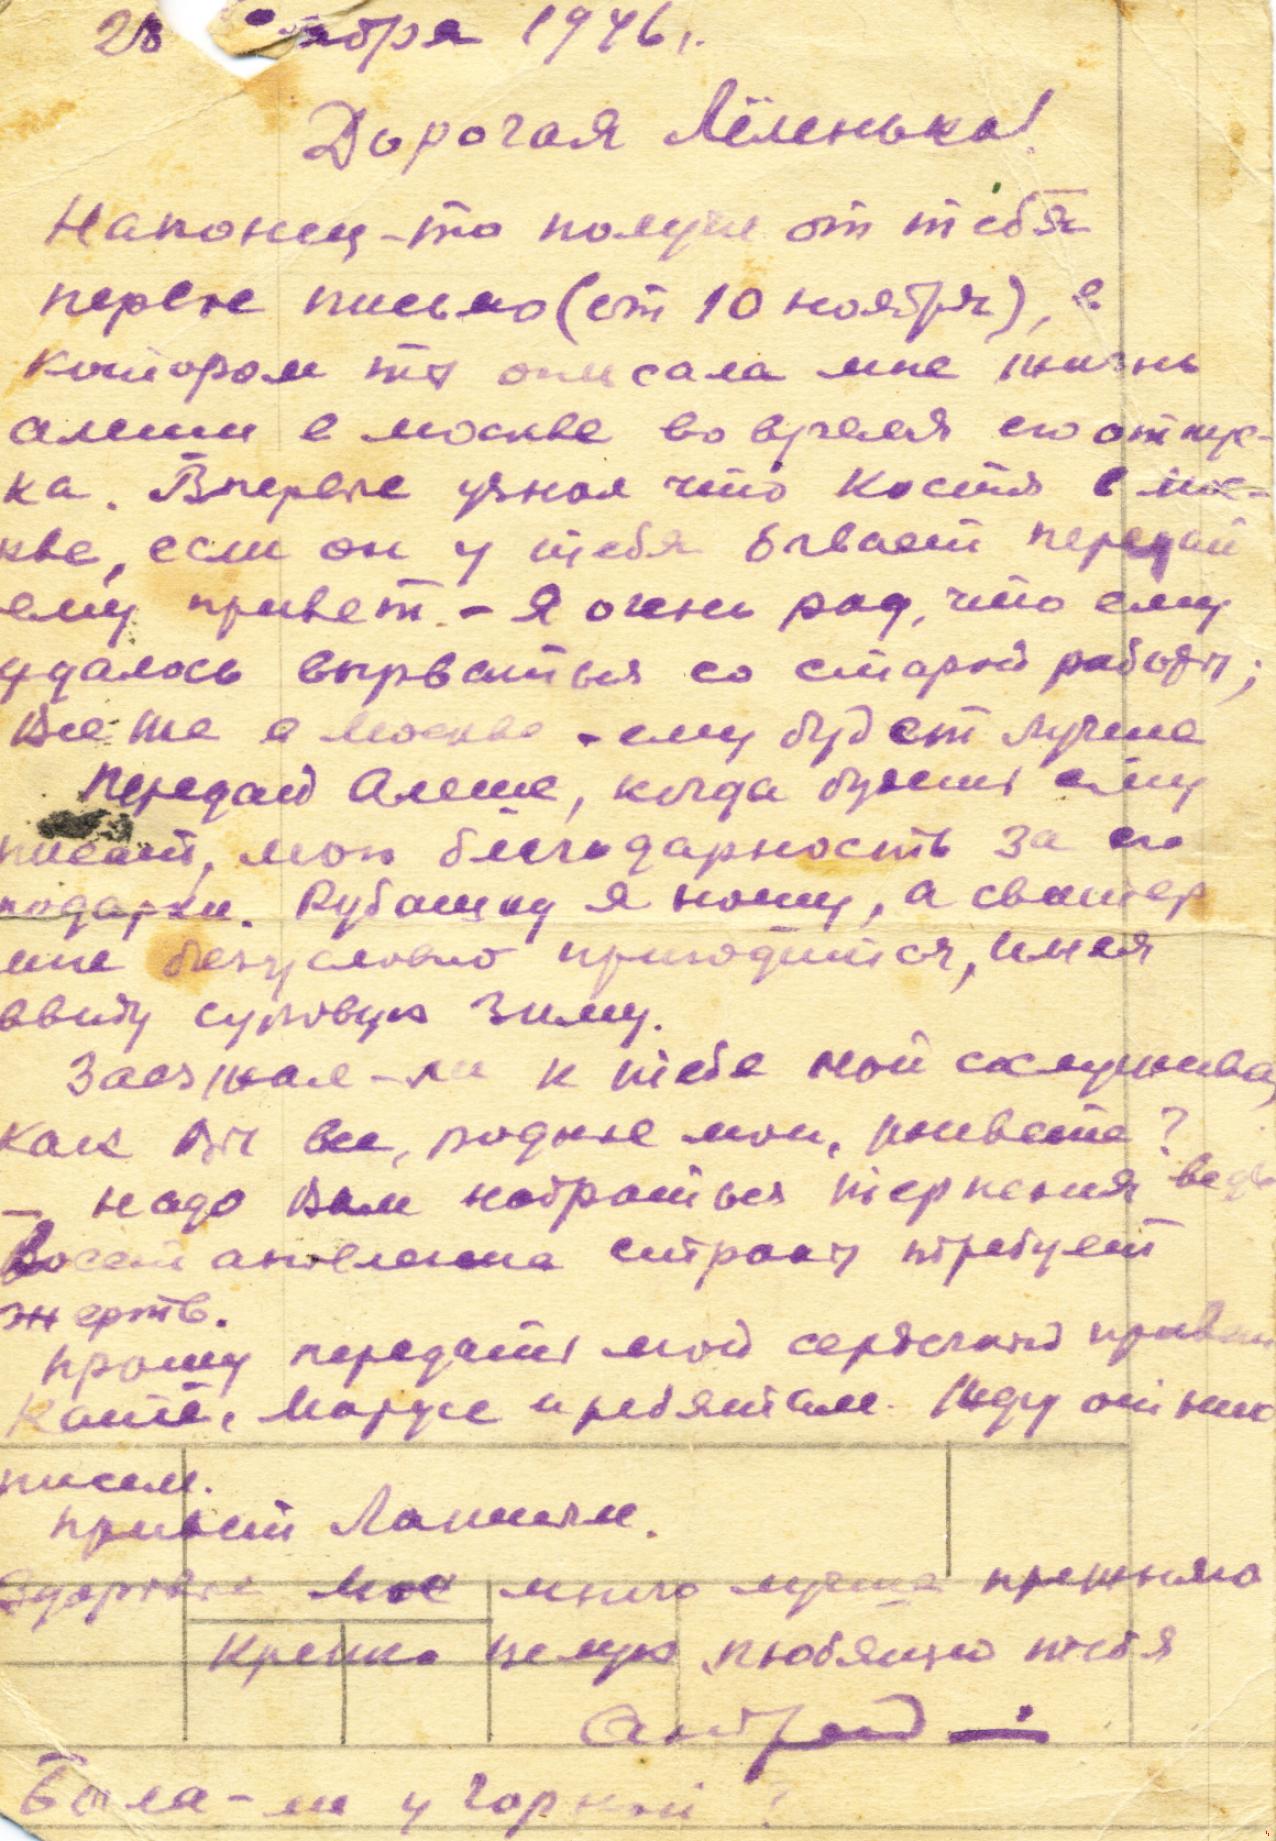 28 ября 1946 г.
Дорогая Лёленька!
Наконец-то получил от тебя
первое письмо (от 10 ноября), в
котором ты описала мне жизнь
Алеши в Москве во время его отпус-
ка. Впервые узнал что Костя в Мос-
кве, если он у тебя бывает передай
ему привет. – Я очень рад, что ему
удалось вырваться со старой работы;
Все же в Москве – ему будет лучше
Передай Алеше, когда будешь ему
писать, мою благодарность за его
подарки. Рубашку я ношу, а свитер
мне безусловно пригодится, имея
ввиду суровую зиму.
Заезжал-ли к тебе мой сослуживец,
как Вы все, родные мои, живете?
– надо Вам набраться терпения ведь
Восстановление страны требует
жертв.
Прошу передать мой сердечный привет
Кате, Марусе и ребятам. Жду от них
писем.
Привет Лапиным.
Здоровье мое много лучше прежнего
Крепко целую любящий тебя
Андрей
Была-ли у Горной?